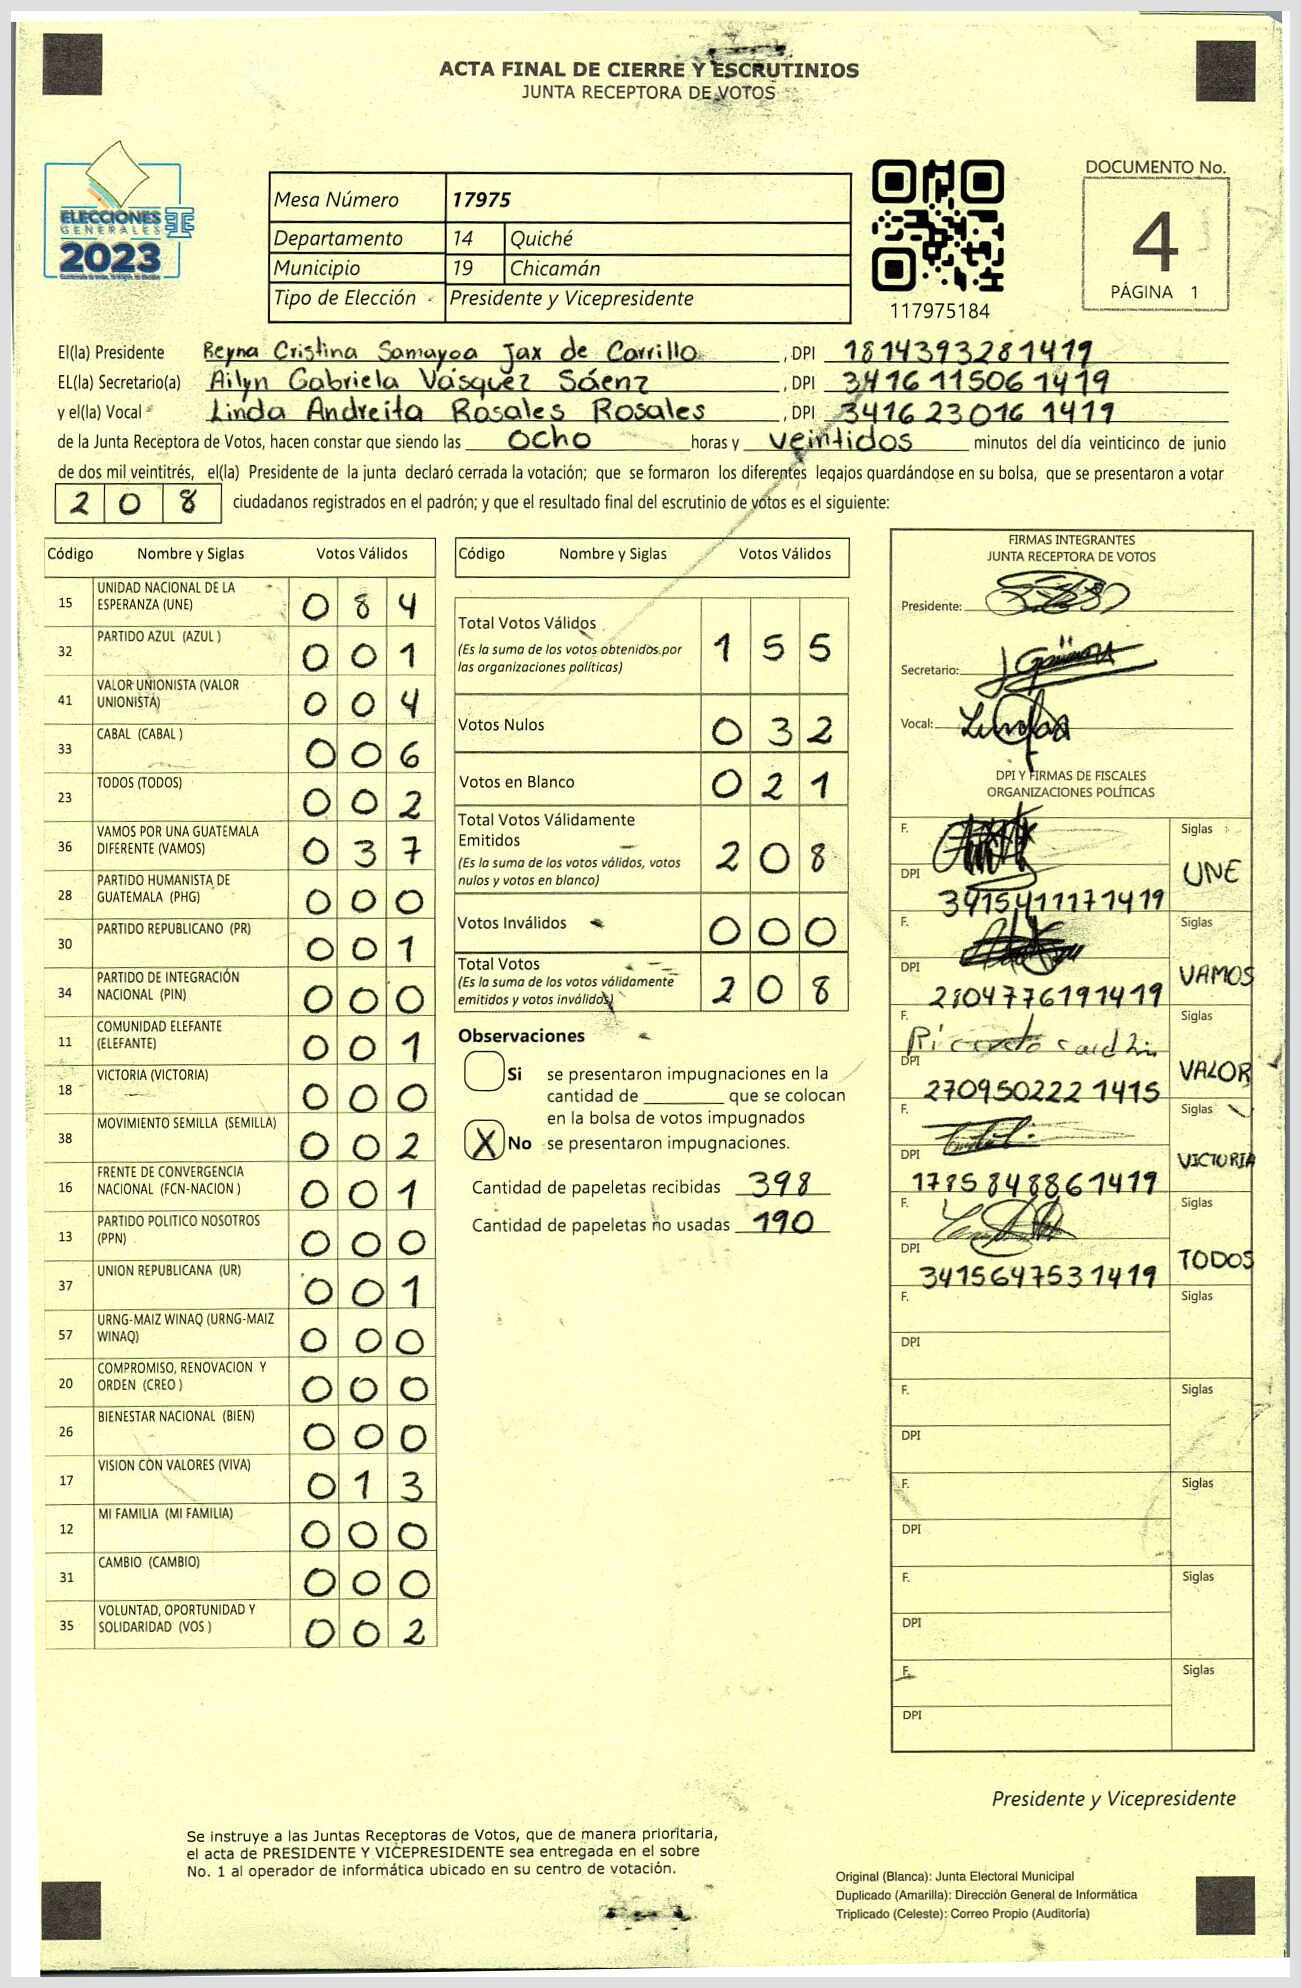 ACTA FINAL DE CIERRE Y ESCRUTINIOS
JUNTA RECEPTORA DE VOTOS
ELECCIONES
GENERALES
2023
Mesa Número 17975
Departamento 14 Quiché
Municipio 19 Chicamán
Tipo de Elección Presidente y Vicepresidente
117975184
DOCUMENTO No.
4
PÁGINA 1
El(la) Presidente Reyna Cristina Samayoa Jax de Carrillo , DPI 1814393281419
EL(la) Secretario(a) Ailyn Gabriela Vásquez Sáenz , DPI 3416115061419
y el(la) Vocal Linda Andreita Rosales Rosales , DPI 3416230161419
de la Junta Receptora de Votos, hacen constar que siendo las ocho horas y veintidos minutos del día veinticinco de junio
de dos mil veintitrés, el(la) Presidente de la junta declaró cerrada la votación; que se formaron los diferentes legajos guardándose en su bolsa, que se presentaron a votar
208 ciudadanos registrados en el padrón; y que el resultado final del escrutinio de votos es el siguiente:
Código Nombre y Siglas Votos Válidos
15 UNIDAD NACIONAL DE LA ESPERANZA (UNE) 084
32 PARTIDO AZUL (AZUL ) 001
41 VALOR UNIONISTA (VALOR UNIONISTA) 004
33 CABAL (CABAL ) 006
23 TODOS (TODOS) 002
36 VAMOS POR UNA GUATEMALA DIFERENTE (VAMOS) 037
28 PARTIDO HUMANISTA DE GUATEMALA (PHG) 000
30 PARTIDO REPUBLICANO (PR) 001
34 PARTIDO DE INTEGRACIÓN NACIONAL (PIN) 000
11 COMUNIDAD ELEFANTE (ELEFANTE) 001
18 VICTORIA (VICTORIA) 000
38 MOVIMIENTO SEMILLA (SEMILLA) 002
16 FRENTE DE CONVERGENCIA NACIONAL (FCN-NACION ) 001
13 PARTIDO POLITICO NOSOTROS (PPN) 000
37 UNION REPUBLICANA (UR) 001
57 URNG-MAIZ WINAQ (URNG-MAIZ WINAQ) 000
20 COMPROMISO, RENOVACION Y ORDEN (CREO ) 000
26 BIENESTAR NACIONAL (BIEN) 000
17 VISION CON VALORES (VIVA) 013
12 MI FAMILIA (MI FAMILIA) 000
31 CAMBIO (CAMBIO) 000
35 VOLUNTAD, OPORTUNIDAD Y SOLIDARIDAD (VOS ) 002
Código Nombre y Siglas Votos Válidos
Total Votos Válidos 155
(Es la suma de los votos obtenidos por
las organizaciones políticas)
Votos Nulos 032
Votos en Blanco 021
Total Votos Válidamente
Emitidos 208
(Es la suma de los votos válidos, votos
nulos y votos en blanco)
Votos Inválidos 000
Total Votos 208
(Es la suma de los votos válidamente
emitidos y votos inválidos)
Observaciones
Si se presentaron impugnaciones en la
cantidad de ________ que se colocan
en la bolsa de votos impugnados
X No se presentaron impugnaciones.
Cantidad de papeletas recibidas 398
Cantidad de papeletas no usadas 190
FIRMAS INTEGRANTES
JUNTA RECEPTORA DE VOTOS
Presidente:
Secretario:
Vocal:
DPI Y FIRMAS DE FISCALES
ORGANIZACIONES POLÍTICAS
F. Siglas
DPI 3415411171419 UNE
F. Siglas
DPI 2804776191419 VAMOS
F. Siglas
DPI 2709502221415 VALOR
F. Siglas
DPI 1785848861419 VICTORIA
F. Siglas
DPI 3415647531419 TODOS
F. Siglas
DPI
F. Siglas
DPI
F. Siglas
DPI
F. Siglas
DPI
F. Siglas
DPI
Presidente y Vicepresidente
Se instruye a las Juntas Receptoras de Votos, que de manera prioritaria,
el acta de PRESIDENTE Y VICEPRESIDENTE sea entregada en el sobre
No. 1 al operador de informática ubicado en su centro de votación.
Original (Blanca): Junta Electoral Municipal
Duplicado (Amarilla): Dirección General de Informática
Triplicado (Celeste): Correo Propio (Auditoría)